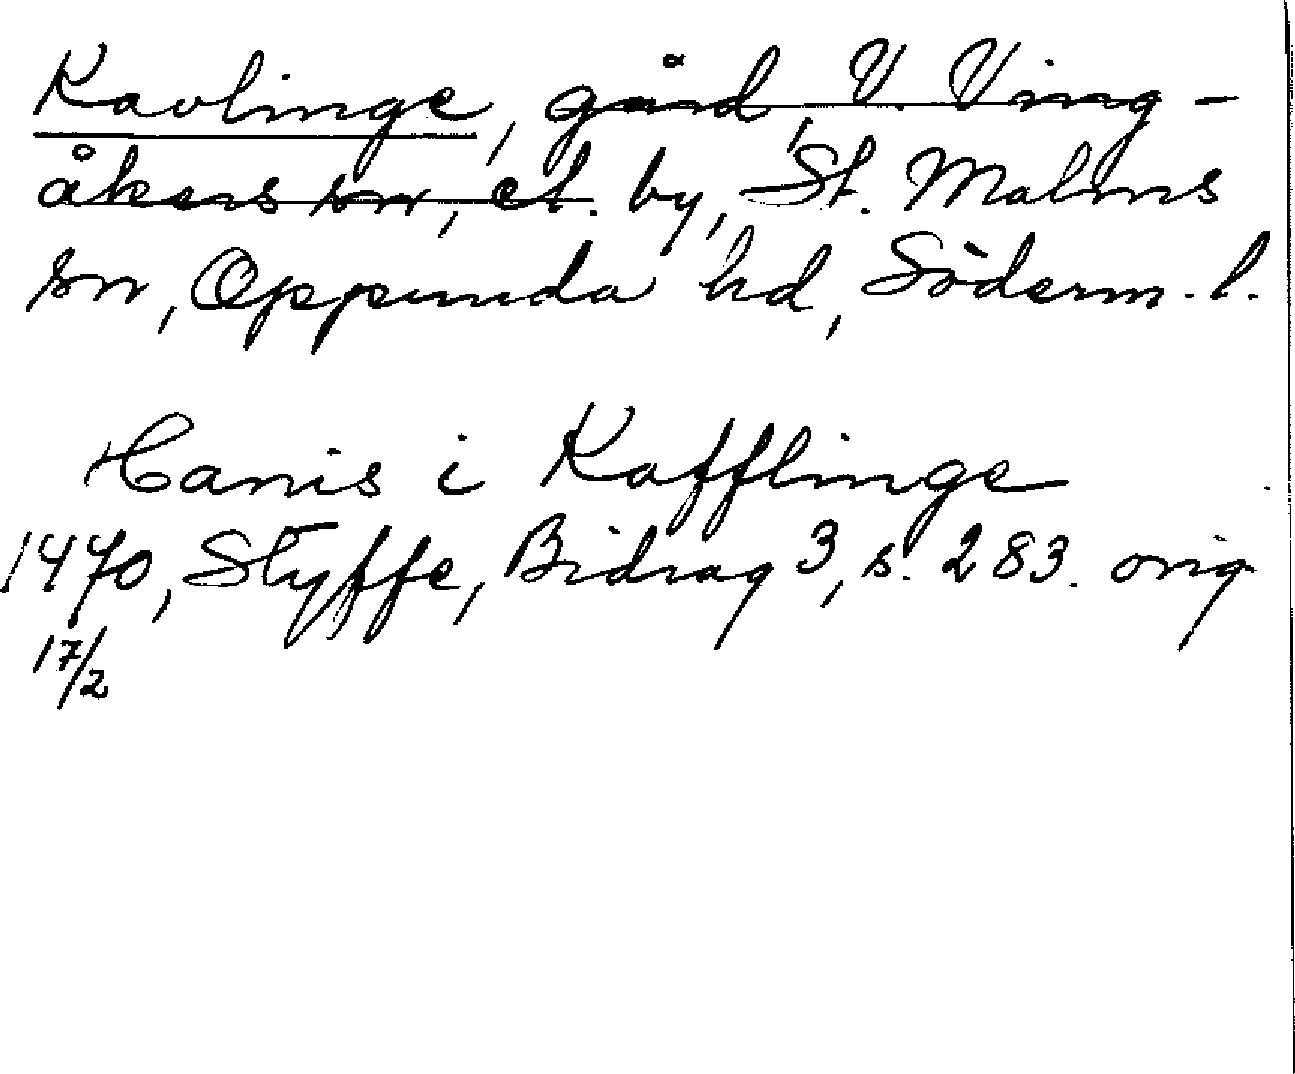 Kavlinge, gård, V. Ving-
åkers sn, el. by, St. Malms
sn, Oppunda hd, Söderm. l.
Hanis i Kafflinge
1470, Styffe, Bidrag 3, s. 283. orig
17/2